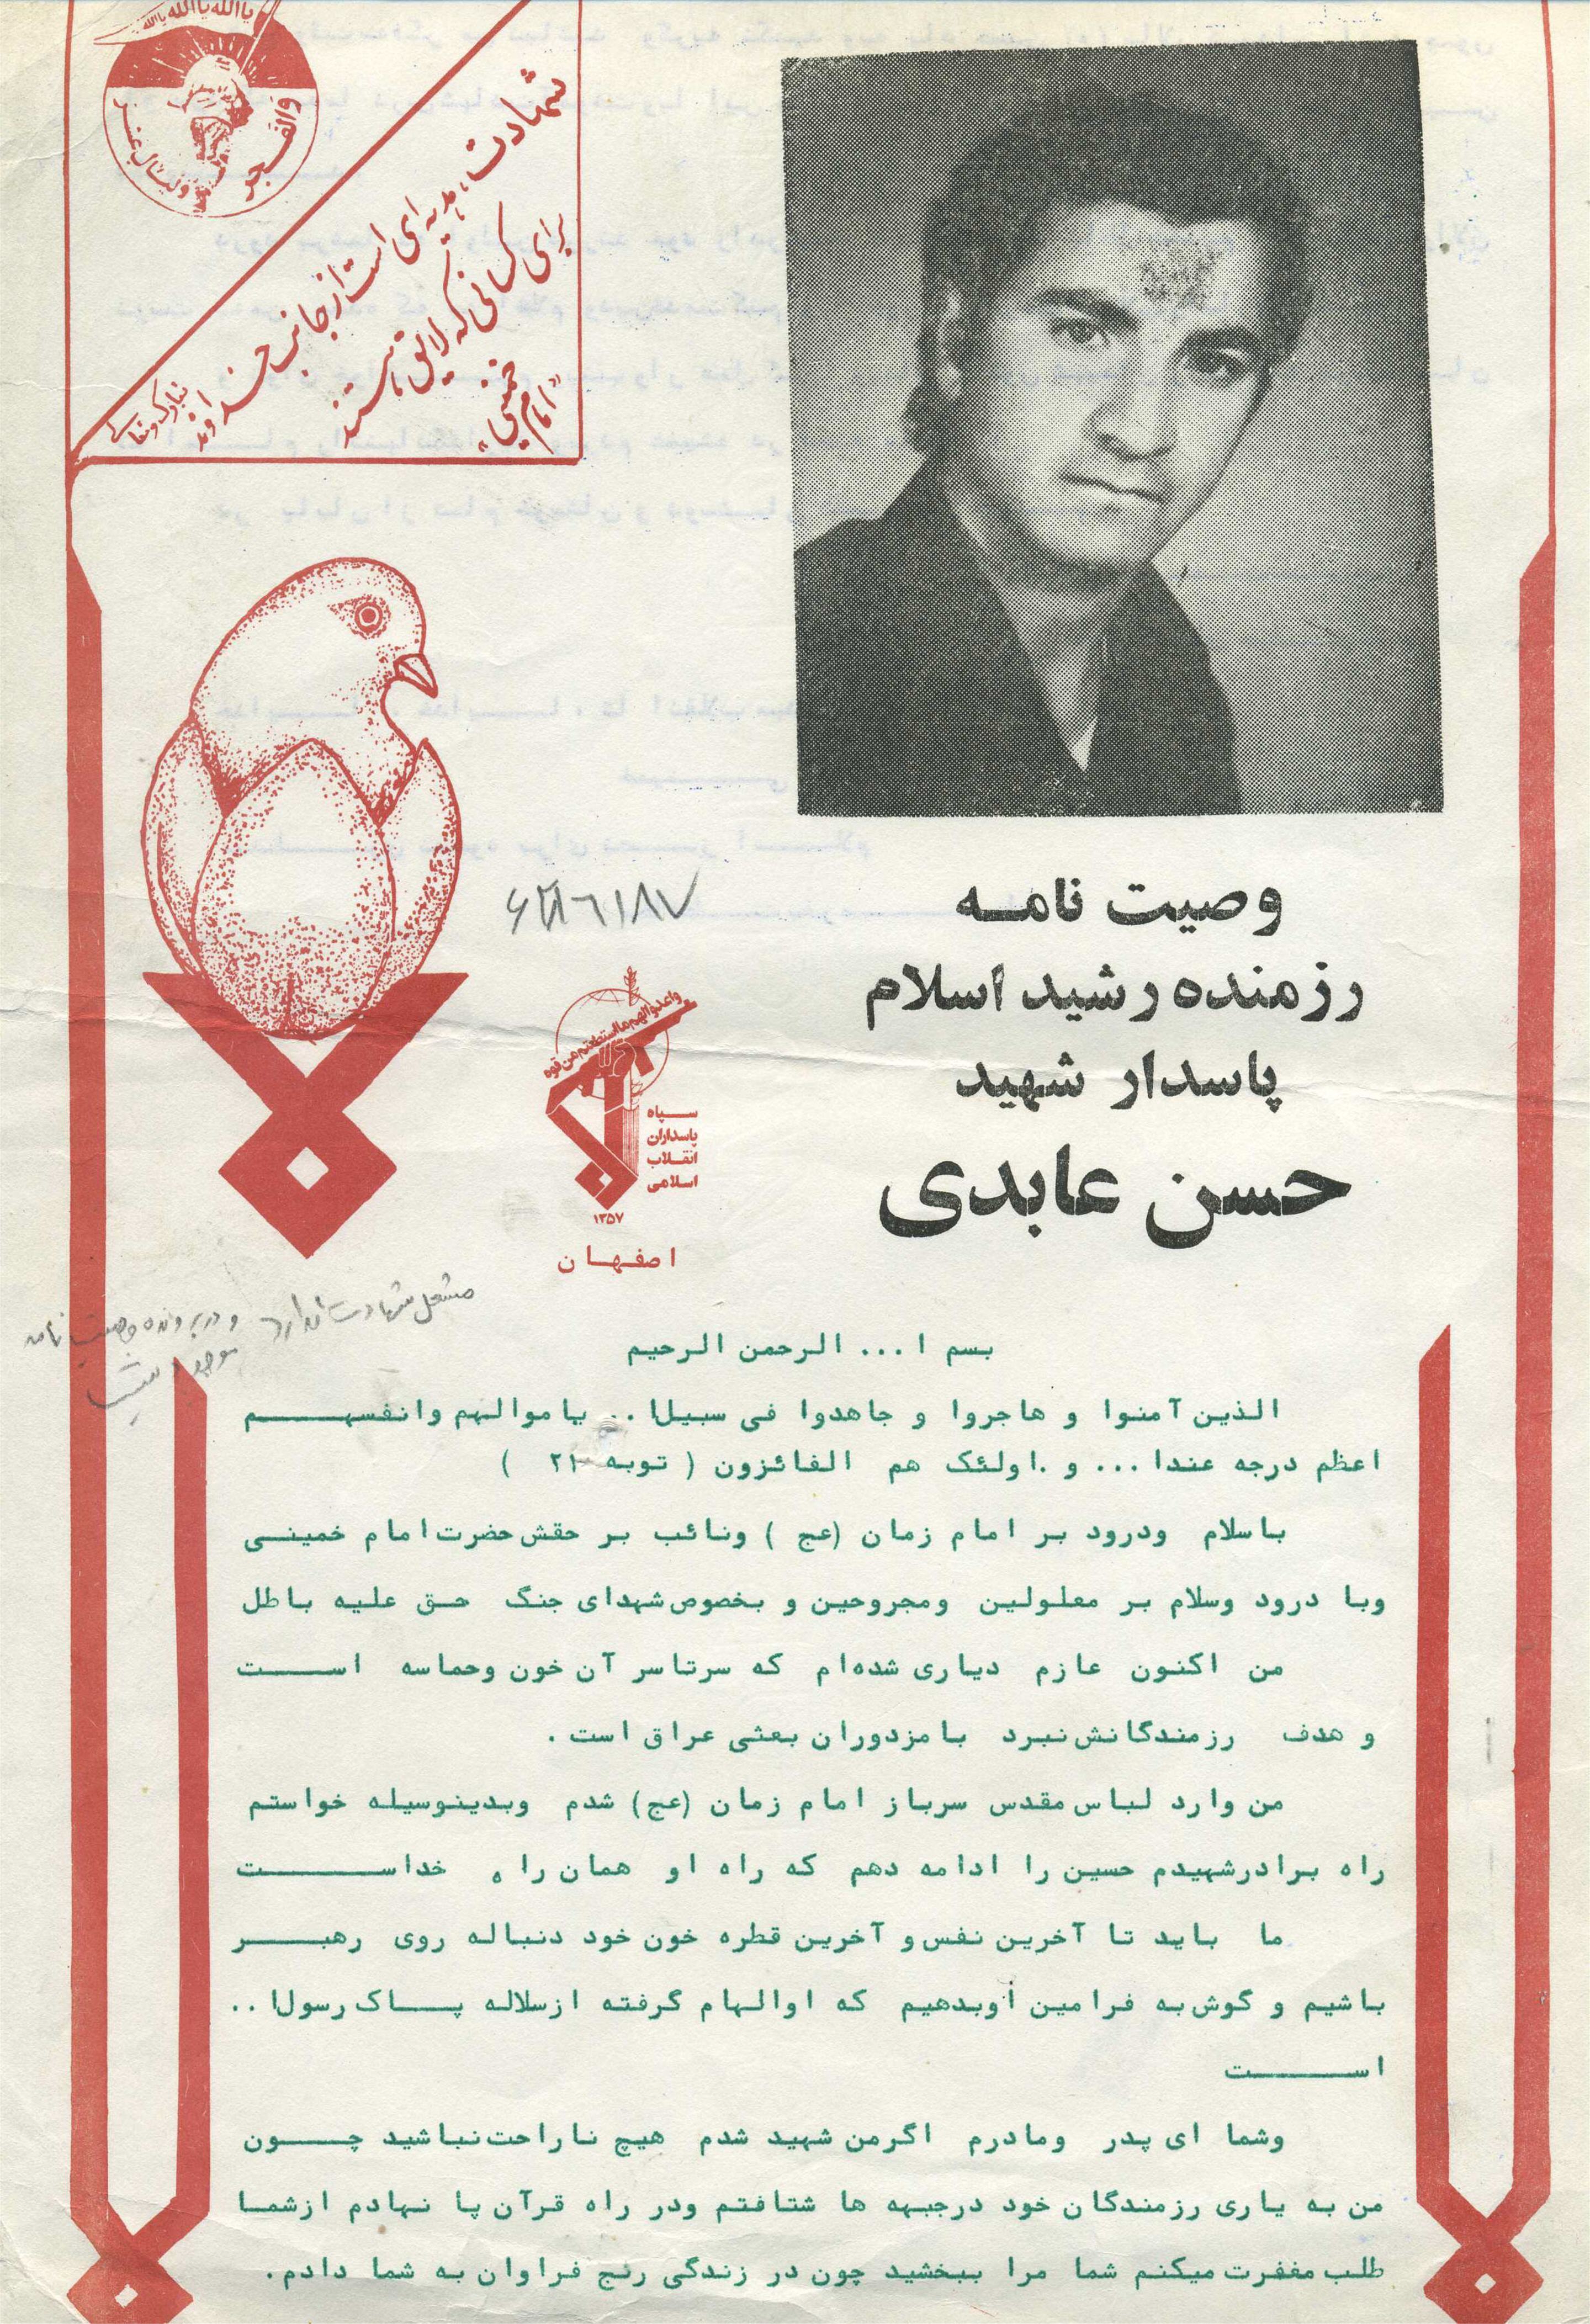 یاالله یاالله یاالله
والفجر
ولیال عشر
شهادت، هدیه‌ای است از جانب خداوند تبارک و تعالی
برای کسانی که لایق هستند
«امام خمینی»
وصیت نامـه
رزمنده رشید اسلام
پاسدار شهید
حسن عابدی
واعدوا لهم ما استطعتم من قوه
سـپاه
پاسداران
انقلاب
اسلامی
۱۳۵۷
اصفهـان
مشعل شهادت ندارد و در پرونده وصیت نامه
موجود
بسم ا... الرحمن الرحیم
الذین آمنوا و هاجروا و جاهدوا فی سبیل‌ا.. باموالهم وانفسهـم
اعظم درجه عندا... و .اولئک هم الفائزون ( توبه ۲۱ )
باسلام ودرود بر امام زمان (عج ) ونائب بر حقش حضرت امام خمینـی
وبا درود وسلام بر معلولین ومجروحین و بخصوص شهدای جنگ حـق علیه باطل
من اکنون عازم دیاری شده‌ام که سرتاسر آن خون وحماسه اسـت
و هدف رزمندگانش نبرد بامزدوران بعثی عراق است .
من وارد لباس مقدس سرباز امام زمان (عج) شدم وبدینوسیله خواستم
راه برادرشهیدم حسین را ادامه دهم که راه او همان راه خداسـت
ما باید تا آخرین نفس و آخرین قطره خون خود دنباله روی رهبـر
باشیم و گوش به فرامین اوبدهیم که اوالهام گرفته ازسلاله پـاک رسول‌ا..
اسـت
وشما ای پدر ومادرم اگرمن شهید شدم هیچ ناراحت نباشید چـون
من به یاری رزمندگان خود درجبهه ها شتافتم ودر راه قرآن پا نهادم ازشمـا
طلب مغفرت میکنم شما مرا ببخشید چون در زندگی رنج فراوان به شما دادم.